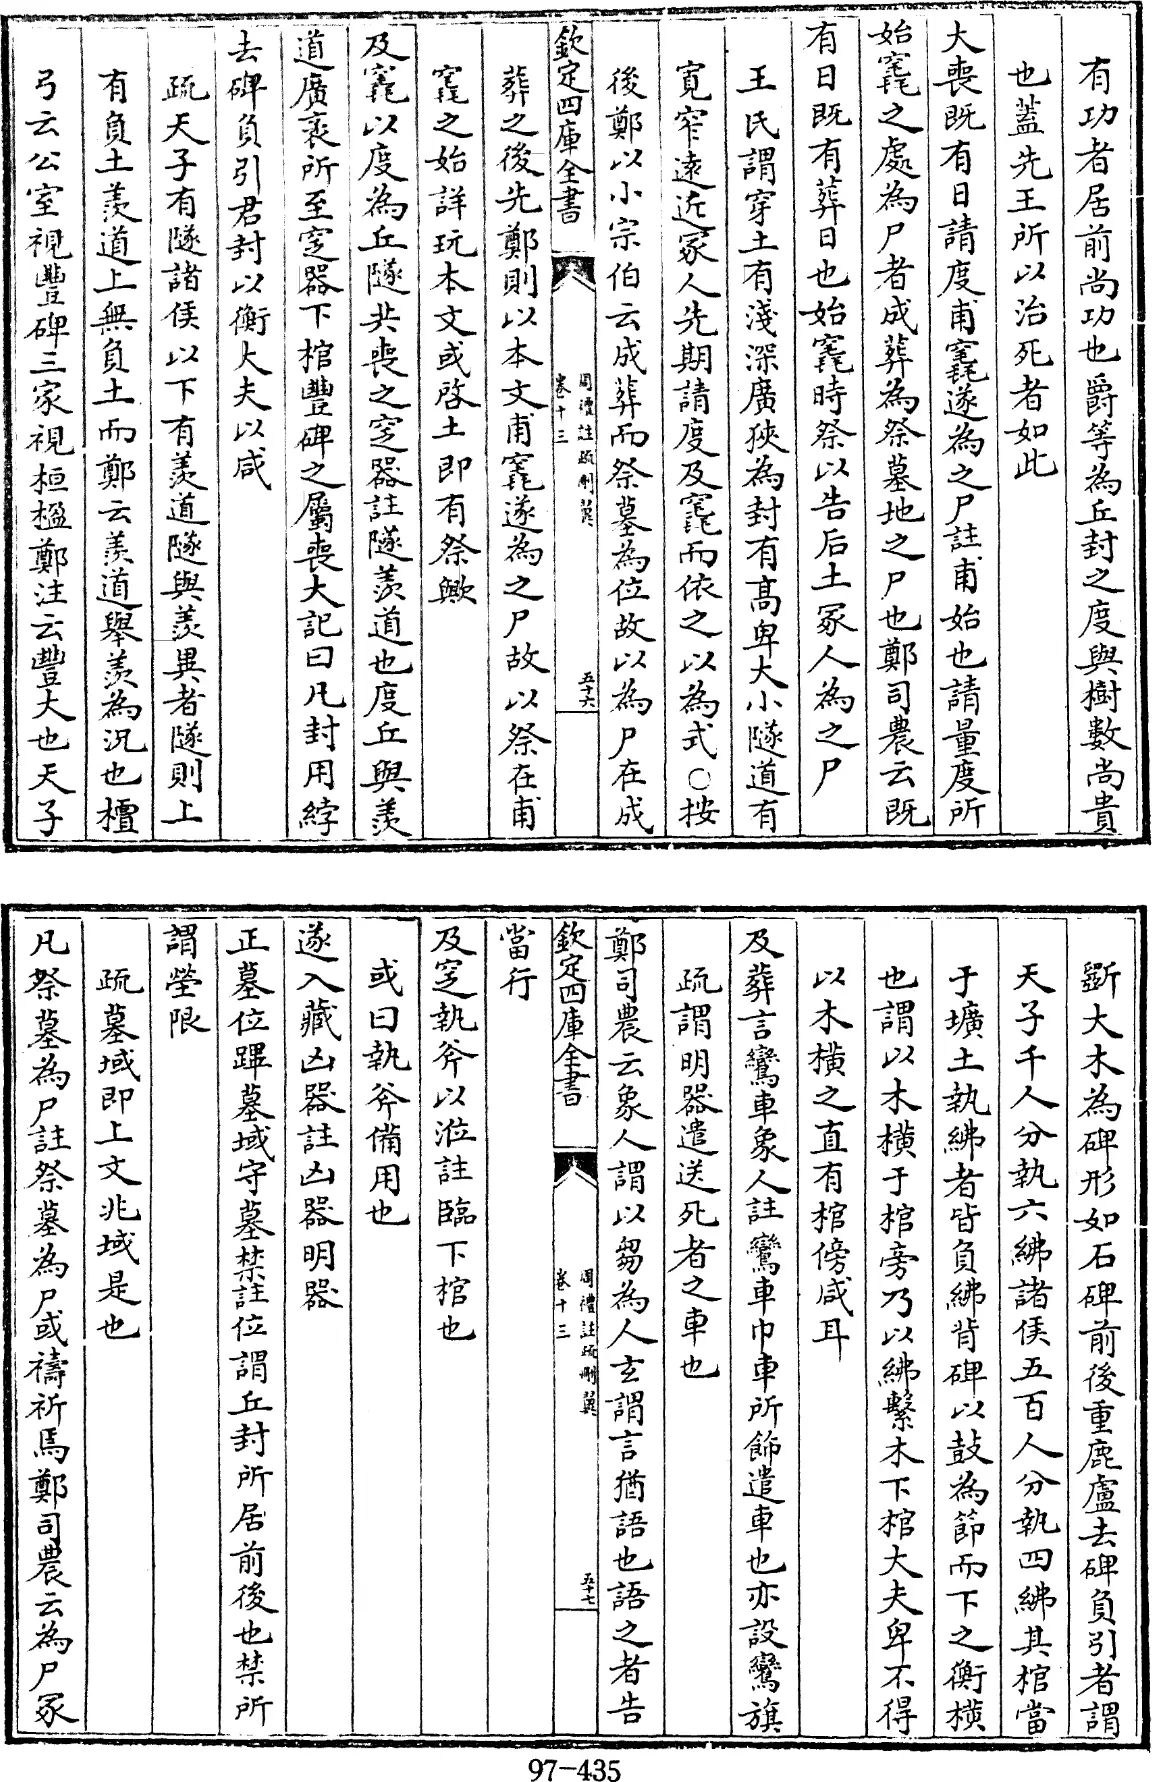 有功者居前尚功也爵等為丘封之度與樹數尚貴
也蓋先王所以治死者如此
大喪既有日請度甫竁遂為之尸註甫始也請量度所
始竁之處為尸者成葬為祭墓地之尸也鄭司農云既
有日既有葬日也始竁時祭以告后土冢人為之尸
王氏謂穿土有淺深廣狹為封有高卑大小隧道有
寛窄遠近冢人先期請度及竁而依之以為式○按
後鄭以小宗伯云成葬而祭墓為位故以為尸在成
欽定四庫全書
周禮註疏刪翼
卷十三
五十六
葬之後先鄭則以本文甫竁遂為之尸故以祭在甫
竁之始詳玩本文或啓土即有祭歟
及竁以度為丘隧共喪之窆器註隧羨道也度丘與羨
道廣袤所至窆器下棺豐碑之屬喪大記曰凡封用綍
去碑負引君封以衡大夫以咸
疏天子有隧諸侯以下有羨道隧與羨異者隧則上
有負土羨道上無負土而鄭云羨道舉羨為況也檀
弓云公室視豐碑三家視桓楹鄭注云豐大也天子
斲大木為碑形如石碑前後重鹿盧去碑負引者謂
天子千人分執六紼諸侯五百人分執四紼其棺當
于壙土執紼者皆負紼背碑以鼓為節而下之衡橫
也謂以木橫于棺旁乃以紼繫木下棺大夫卑不得
以木橫之直有棺傍咸耳
及葬言鸞車象人註鸞車巾車所飾遣車也亦設鸞旗
疏謂明器遣送死者之車也
鄭司農云象人謂以芻為人玄謂言猶語也語之者告
欽定四庫全書
周禮註疏刪翼
卷十三
五十七
當行
及窆執斧以涖註臨下棺也
或曰執斧備用也
遂入藏凶器註凶器明器
正墓位蹕墓域守墓禁註位謂丘封所居前後也禁所
謂塋限
疏墓域即上文兆域是也
凡祭墓為尸註祭墓為尸或禱祈焉鄭司農云為尸冢
97-435